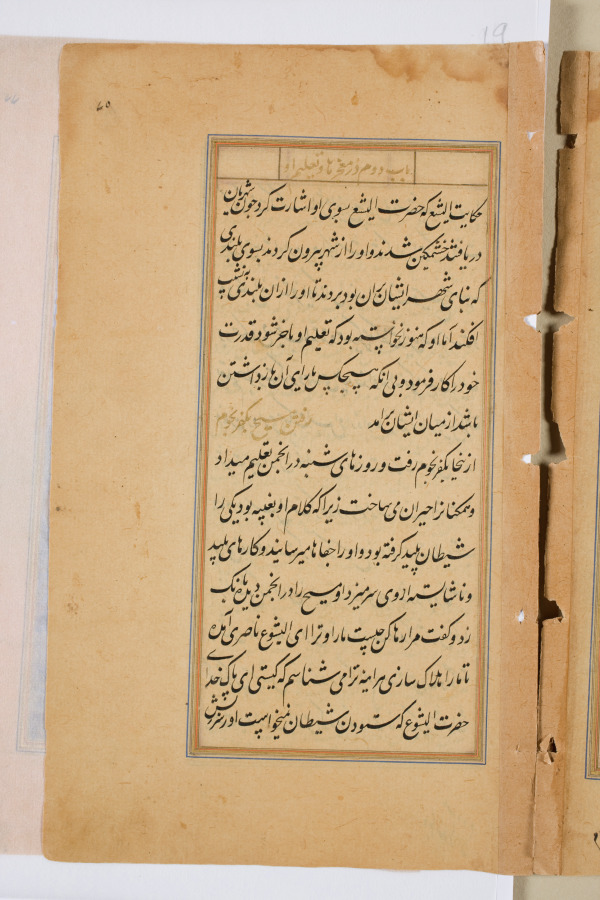 19
باب دوم در معجزها و تعلیم او
حکایت الیشع که حضرت الیشع بسوی او اشارت کرد چون شهریان
دریافتند خشمگین شدند و او را از شهر بیرون کردند بسوی بلندی
که بنای شهر ایشان بران بود بردند تا او را ازان بلندی به نشیب
افکند اما او که هنوز نخواسته بود که تعلیم او بآخر شود قدرت
خود را کار فرمود و بی آنکه هیچکس یارای آن بازداشتن
باشد از میان ایشان برآمد رفتن مسیح بکفرنحوم
از ینجا بکفرنحوم رفت و روزهای شنبه در انجمن تعلیم میداد
و همکنانرا حیران می ساخت زیرا که کلام او بغلبه بود یکی را
شیطان پلید گرفته بود و او را جفاها میرسانید و کارهای پلید
و ناشایسته از وی سر میزد او مسیح را در انجمن دیده بانک
زد و گفت مرا رها کن چیست مارا و ترا ای الیشوع ناصری آمده
تا ما را هلاک سازی هرآینه ترا می شناسم که کیستی ای پاک خدای
حضرت الیشوع که ستودن شیطان نمیخواست او را سرزنش